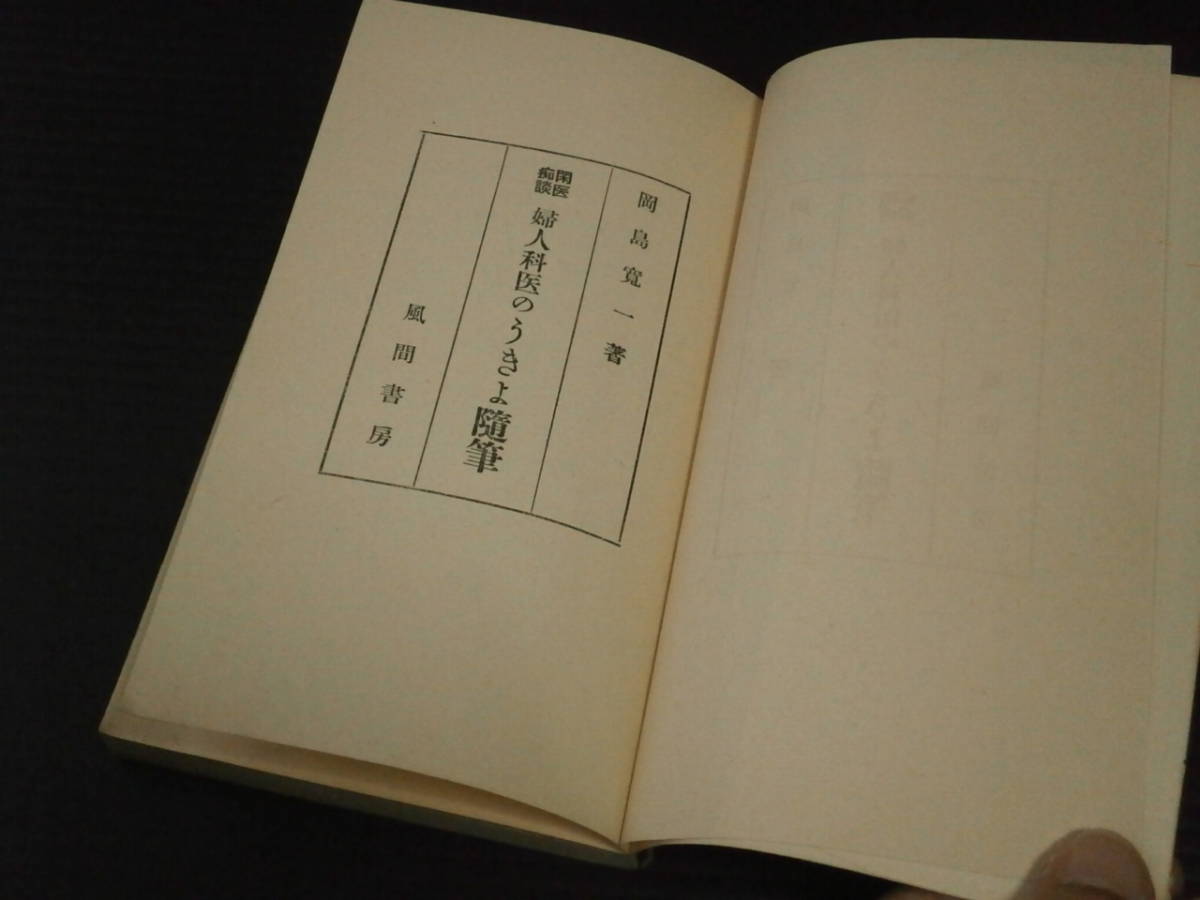 岡島寛一著
閑医痴談 婦人科医のうきよ隨筆
風間書房